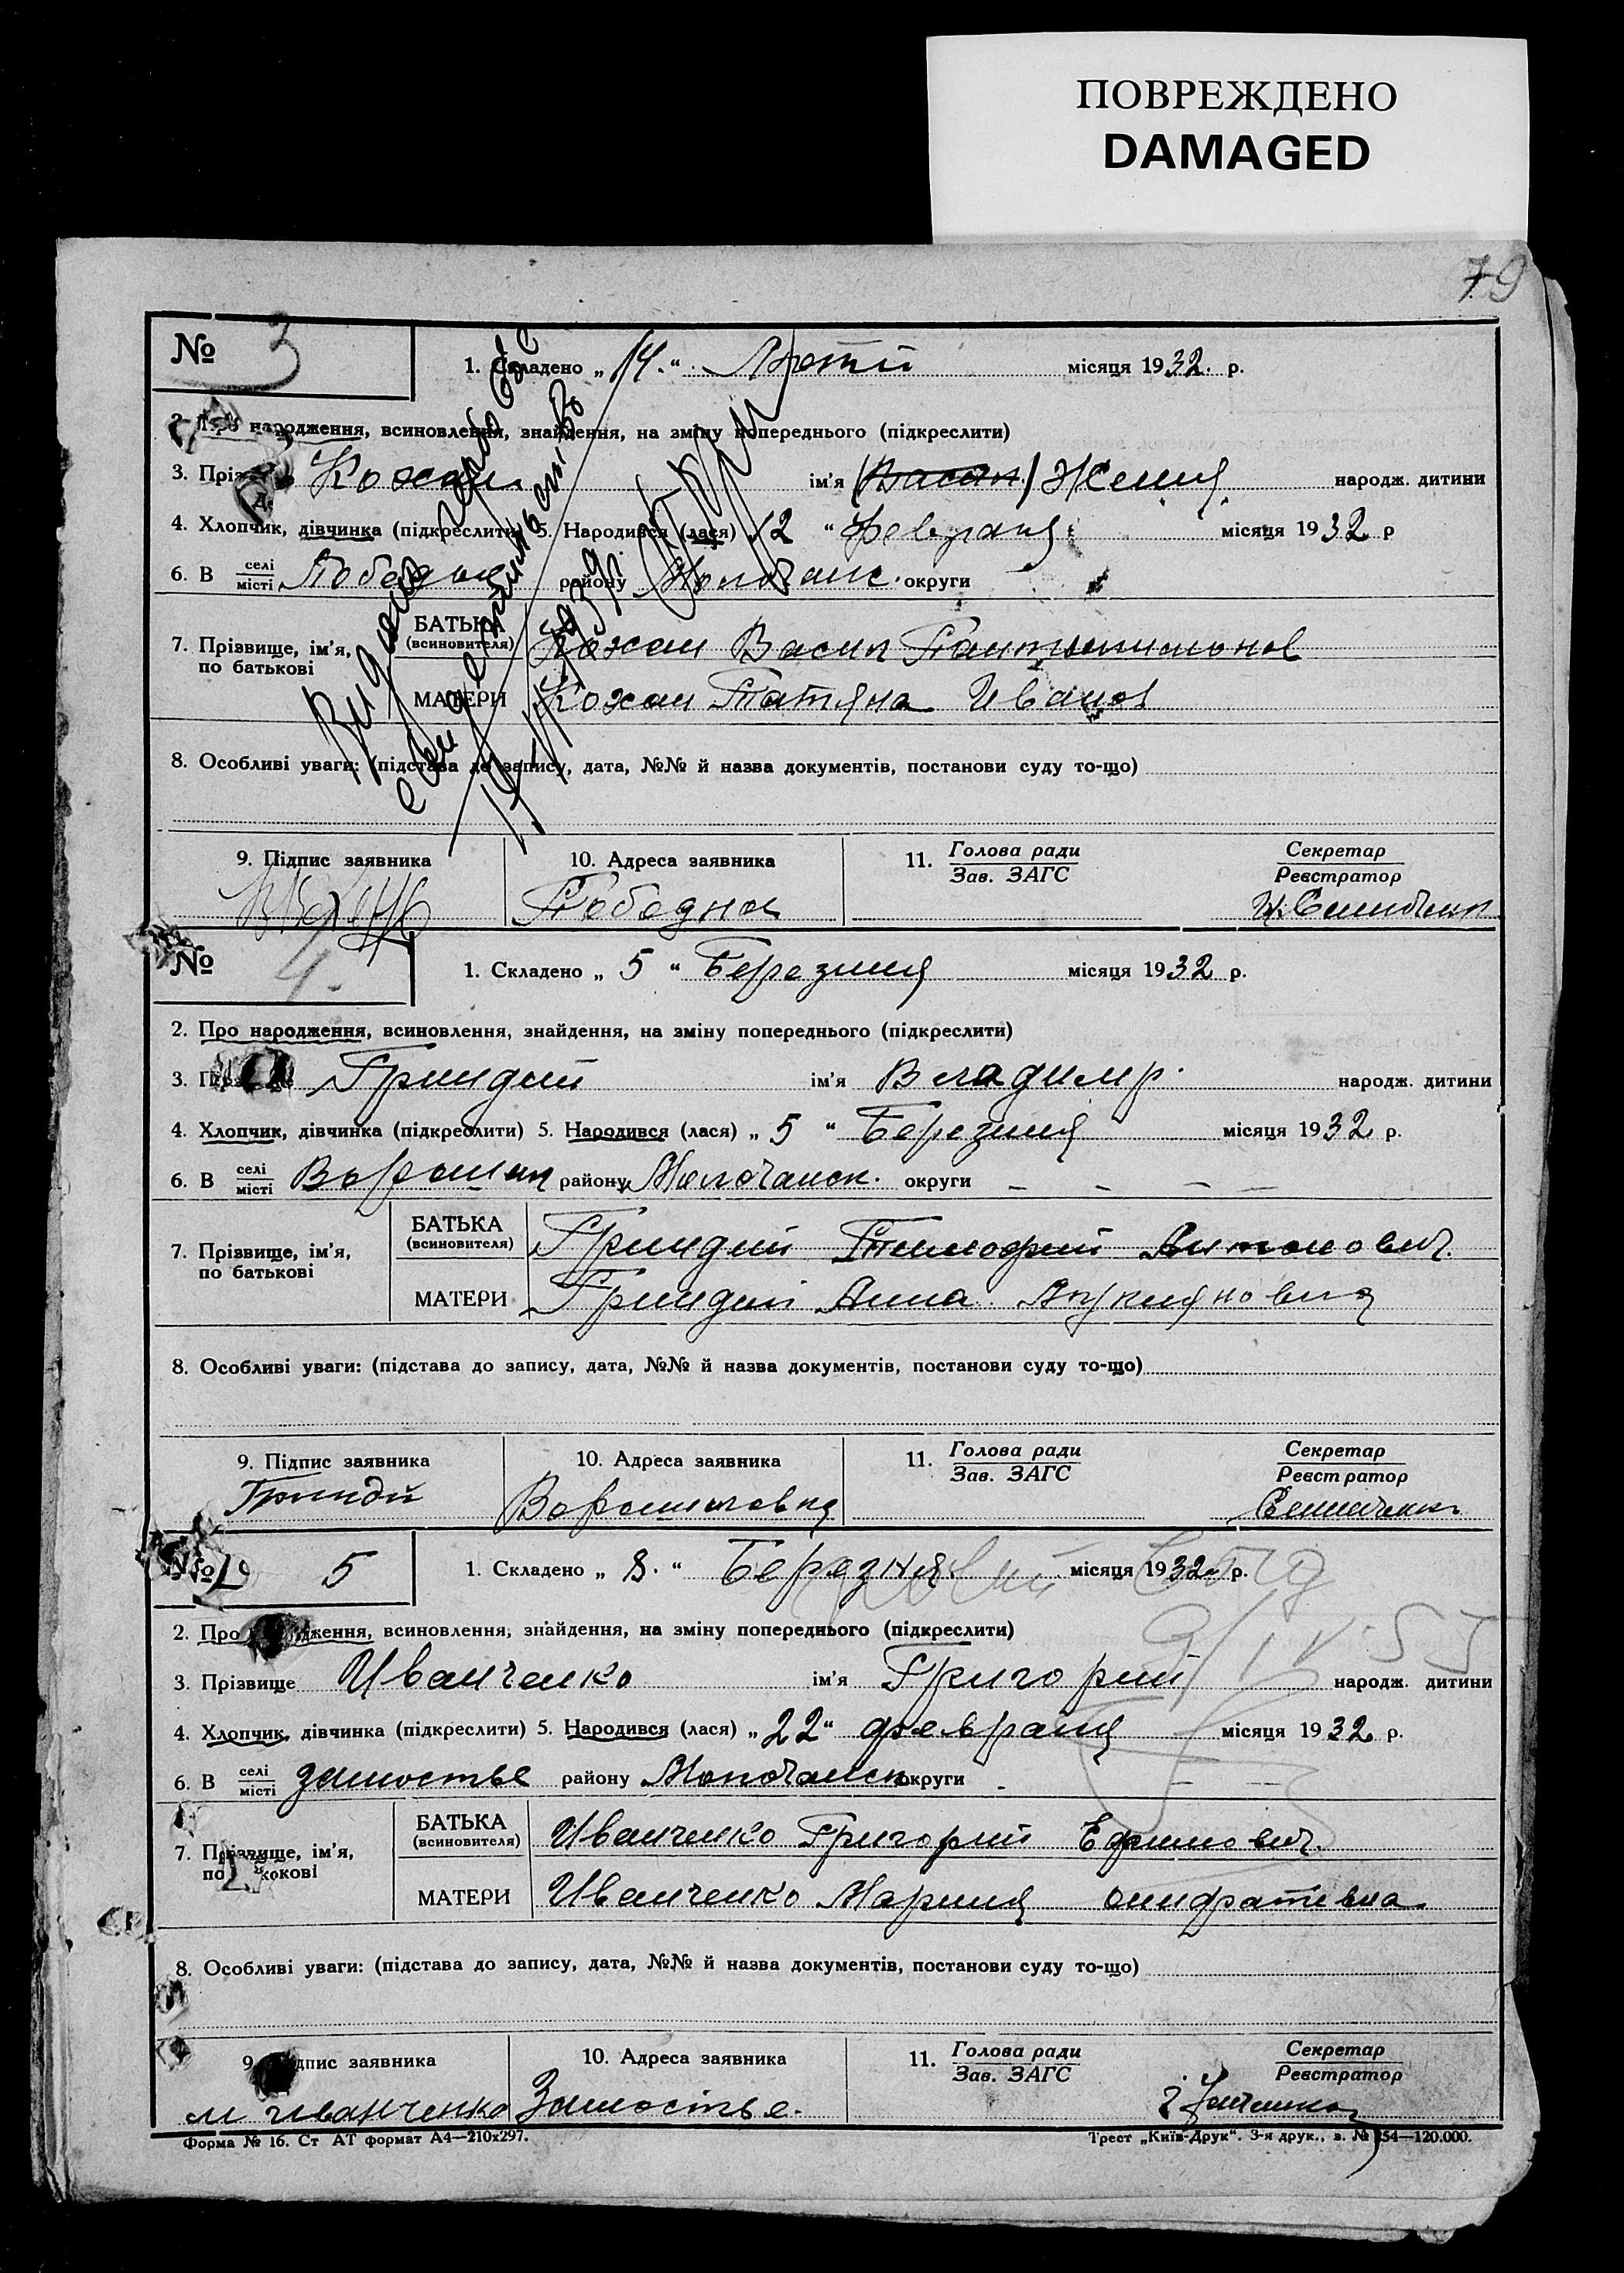 ПОВРЕЖДЕНО
DAMAGED
79
№ 3
1. Складено „14.“ Лютий місяця 1932. р.
народження, всиновлення, знайдення, на зміну попереднього (підкреслити)
3. Кохан ім'я (Васил) Женя народж. дитини
4. Хлопчик, дівчинка (підкреслити) 5. Народився (лася) 12 “ Февраля місяця 1932 р
6. В селі місті Победна району Молочанс. округи
7. Прізвище, ім'я, по батькові
БАТЬКА (всиновителя) Кохан Васил
МАТЕРИ Кохан Татяна Иванов
Видана
8. Особливі уваги: (підстава до запису, дата, №№ й назва документів, постанови суду то-що)
9. Підпис заявника
10. Адреса заявника Победна
11. Голова ради Зав. ЗАГС
Секретар Реєстратор
№ 4.
1. Складено „ 5 “ Березния місяця 1932 р.
2. Про народження, всиновлення, знайдення, на зміну попереднього (підкреслити)
3. Гриндий ім'я Владимр. народж. дитини
4. Хлопчик, дівчинка (підкреслити) 5. Народився (лася) „ 5 “ Березния місяця 1932 р.
6. В селі місті Ворошил району Молочанск. округи – – – –
7. Прізвище, ім'я, по батькові
БАТЬКА (всиновителя) Гриндий Тимофий Антонович.
МАТЕРИ Гриндий Анна.
8. Особливі уваги: (підстава до запису, дата, №№ й назва документів, постанови суду то-що)
9. Підпис заявника Гриндй
10. Адреса заявника Ворошиловка
11. Голова ради Зав. ЗАГС
Секретар Реєстратор
№ 5
1. Складено „ 8. “ Березня місяця 1932 р.
2. Про народження, всиновлення, знайдення, на зміну попереднього (підкреслити)
3. Прізвище Иванченко ім'я Григорий народж. дитини
4. Хлопчик, дівчинка (підкреслити) 5. Народився (лася) „ 22 “ февраля місяця 1932 р.
6. В селі місті Замостье району Молочанск округи –
7. Прізвище, ім'я, по батькові
БАТЬКА (всиновителя) Иванченко Григорий Ефимович.
МАТЕРИ Иванченко Мария
8. Особливі уваги: (підстава до запису, дата, №№ й назва документів, постанови суду то-що)
9. Підпис заявника м иванченко
10. Адреса заявника Замостье.
11. Голова ради Зав. ЗАГС
Секретар Реєстратор
Форма № 16. Ст АТ формат А4—210х297.
Трест „Київ-Друк“. 3-я друк., з. № 254—120.000.